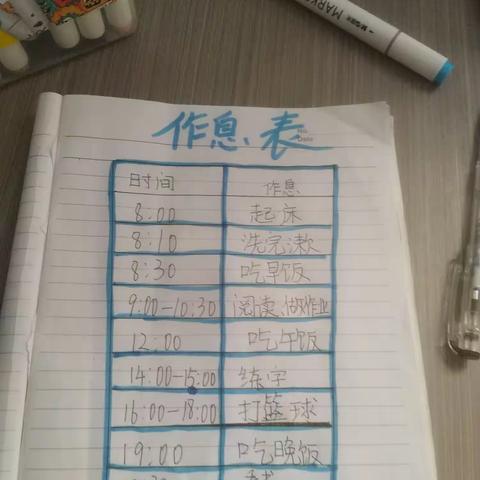 作息表
时间 作息
8:00 起床
8:10 洗完漱
8:30 吃早饭
9:00-10:30 阅读、做作业
12:00 吃午饭
14:00-15:00 练字
16:00-18:00 打篮球
19:00 吃晚饭
MARK